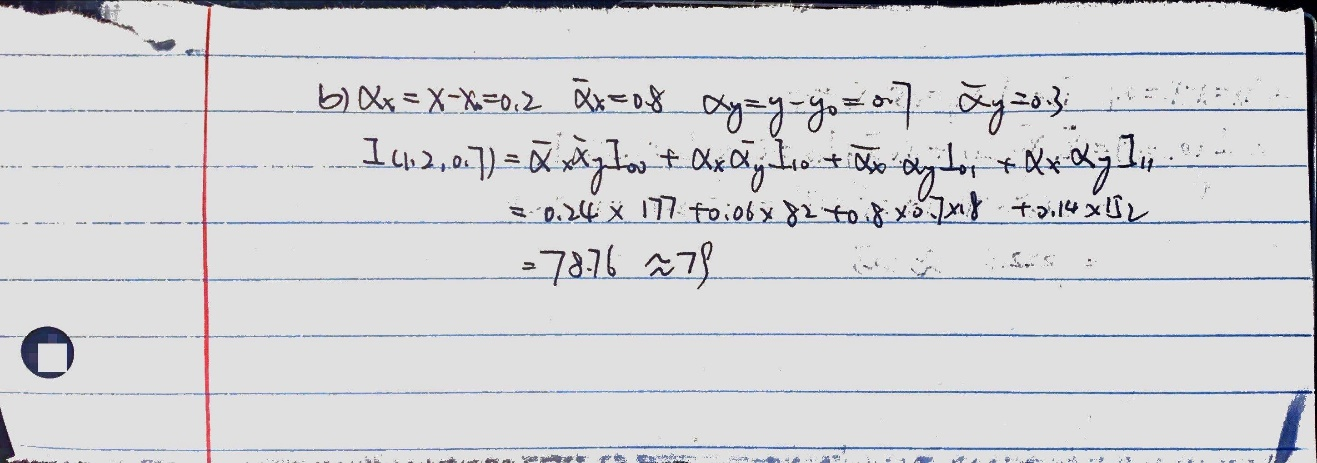 b) αx = x-x₀=0.2 ᾱx=0.8 αy=y-y₀=0.7 ᾱy=0.3
I(1.2,0.7) = ᾱxᾱyI₀₀ + αxᾱyI₁₀ + ᾱx αyI₀₁ + αx αy I₁₁
= 0.24 x 177 +0.06 x 82 +0.8 x0.7x18 +0.14 x152
=78.76 ≈79